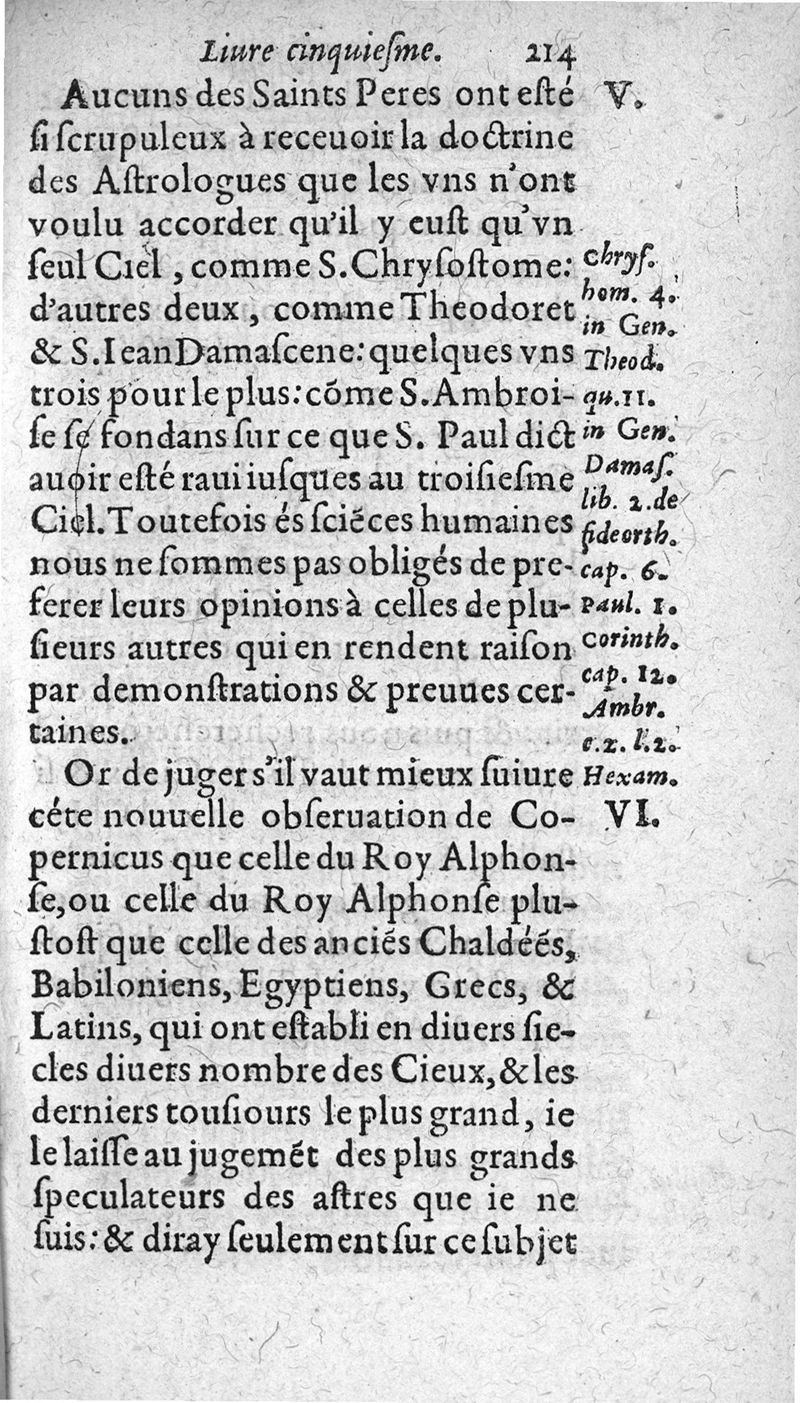 Liure cinquieſme. 214
Aucuns des Saints Peres ont eſté
ſi ſcrupuleux à receuoir la doctrine
des Aſtrologues que les vns n'ont
voulu accorder qu'il y euſt qu'vn
ſeul Ciel, comme S. Chryſoſtome:
d'autres deux, comme Theodoret
& S. Iean Damaſcene: quelques vns
trois pour le plus: cõme S. Ambroi-
ſe ſe fondans ſur ce que S. Paul dict
auoir eſté raui iuſques au troiſieſme
Ciel. Toutefois és ſciẽces humaines
nous ne ſommes pas obligés de pre-
ferer leurs opinions à celles de plu-
ſieurs autres qui en rendent raiſon
par demonſtrations & preuues cer-
taines.
Or de juger s'il vaut mieux ſuiure
céte nouuelle obſeruation de Co-
pernicus que celle du Roy Alphon-
ſe, ou celle du Roy Alphonſe plu-
ſtoſt que celle des anciẽs Chaldéés,
Babiloniens, Egyptiens, Grecs, &
Latins, qui ont eſtabli en diuers ſie-
cles diuers nombre des Cieux, & les
derniers touſiours le plus grand, ie
le laiſſe au jugemẽt des plus grands
ſpeculateurs des aſtres que ie ne
ſuis: & diray ſeulement ſur ce ſubjet
V.
Chryſ.
hom. 4.
in Gen.
Theod.
qu. 11.
in Gen.
Damaſ.
lib. 2. de
fide orth.
cap. 6.
Paul. 1.
Corinth.
cap. 12.
Ambr.
c. 2. l. 2.
Hexam.
VI.